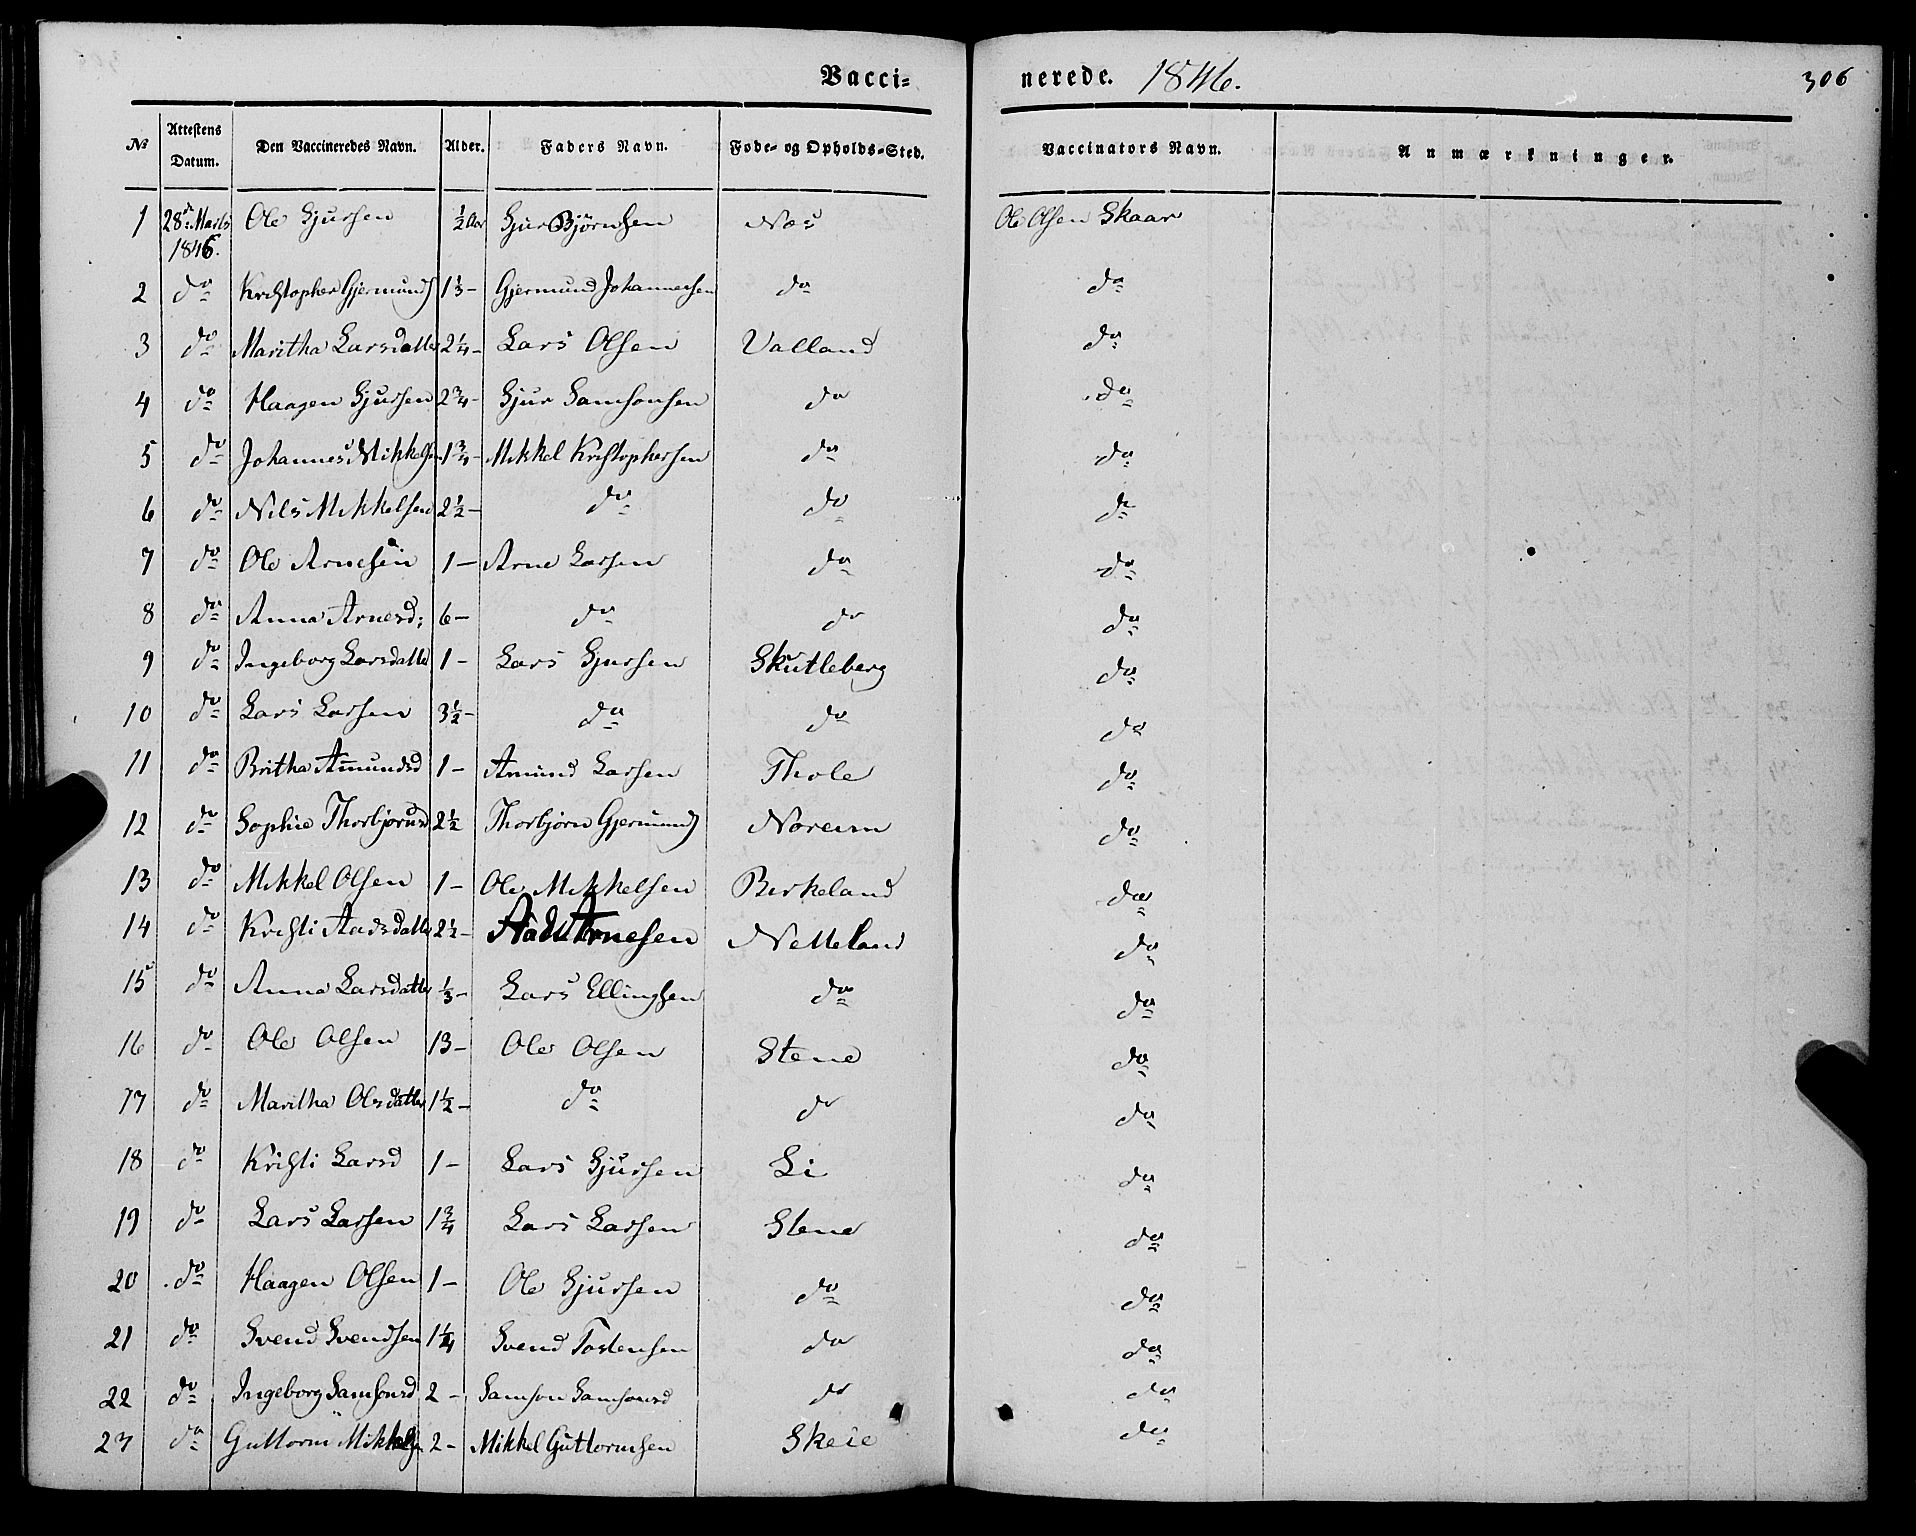 Vacci= nerede. 1846. 306
No Attestens Datum. Den Vaccineredes Navn. Alder. Faders Navn. Føde- og Opholds-Sted. Vaccinators Navn. Anmærkninger.
1 28de Marts 1846. Ole Sjursen ½ Aar Sjur Björnsen Næs Ole Olsen Skaar
2 do Kristopher Gjermunds 1⅓ - Gjermund Johannessen do do
3 do Maritha Larsdatter 2¼ - Lars Olsen Valland do
4 do Haagen Sjursen 2¾ - Sjur Samsonsen do do
5 do Johannes Mikkelsen 1¾ - Mikkel Kristophersen do do
6 do Nils Mikkelsen 2½ - do do do
7 do Ole Arnesen 1 - Arne Larsen do do
8 do Anna Arnesd: 6 - do do do
9 do Ingeborg Larsdatter 1 - Lars Sjursen Skutleberg do
10 do Lars Larsen 3½ - do do do
11 do Britha Amundsd 1 - Amund Larsen Thole do
12 do Sophie Thorbjornsd 2½ Thorbjörn Gjermunds Noreim do
13 do Mikkel Olsen 1 - Ole Mikkelsen Birkeland do
14 do Kristi Aadsdatter 2½ - Aad Arnesen Netteland do
15 do Anna Larsdatter ⅓ - Lars Ellingsen do do
16 do Ole Olsen 13 - Ole Olsen Stene do
17 do Maritha Olsdatter 1½ - do do do
18 do Kristi Larsd 1 - Lars Sjursen Li do
19 do Lars Larsen 1¾ Lars Larsen Stene do
20 do Haagen Olsen 1 - Ole Sjursen do do
21 do Svend Svendsen 1¼ Svend Tostensen do do
22 do Ingeborg Samsonsd 2 - Samson Samsonsd do do
23 do Guttorm Mikkelsen 2 - Mikkel Guttormsen Skeie do